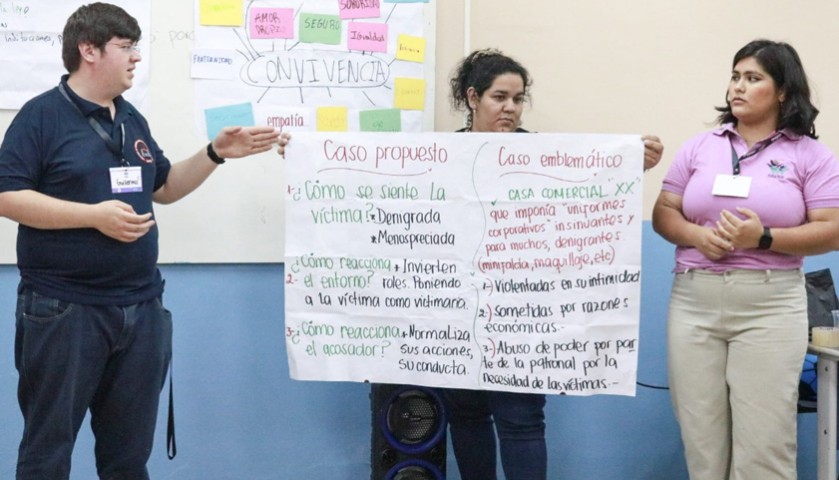 AMOR
PROPIO
SEGURO
SORORIDAD
Igualdad
FRATERNIDAD
CONVIVENCIA
empatía
Caso propuesto
1-¿Cómo se siente la
víctima? *Denigrada
*Menospreciada
2- ¿Cómo reacciona
el entorno? * Invierten
roles. Poniendo
a la víctima como victimaria.
3-¿Cómo reacciona
el acosador? * Normaliza
sus acciones,
su conducta.
Caso emblemático
CASA COMERCIAL "XX"
que imponía "uniformes
corporativos" insinuantes y
para muchos, denigrantes
(minifalda, maquillaje, etc)
1-) Violentadas en su intimidad
2-) Sometidas por razones
económicas.-
3-) Abuso de poder por par
te de la patronal por la
necesidad de las víctimas.-